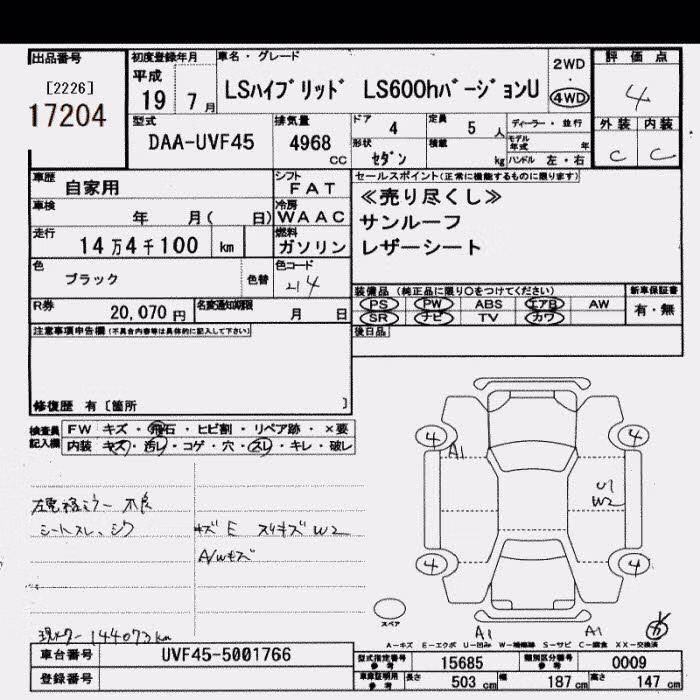 出品番号
[2226]
17204
初度登録年月
平成
19年 7月
車名・グレード
LSハイブリッド LS600hバージョンU
2WD
・
4WD
評価点
4
外装 内装
C C
型式
DAA-UVF45
排気量
4968
CC
ドア
4
定員
5 人
ディーラー・並行
形状
セダン
積載
kg
モデル年式 年
ハンドル 左・右
車歴
自家用
シフト
FAT
セールスポイント(正常に機能するものに限ります)
≪売り尽くし≫
サンルーフ
レザーシート
車検
年 月( 日)
冷房
WAAC
走行
14万4千100 km
燃料
ガソリン
色
ブラック
色替
色コード
214
装備品(純正品に限り○をつけてください)
PS PW ABS エアB AW
SR ナビ TV カワ
新車保証書
有・無
R券
20,070円
名変通知期限
月 日
後日品
注意事項申告欄(不具合内容等は具体的に記入して下さい)
修復歴 有〔箇所 〕
検査員記入欄
FW キズ・飛石・ヒビ割・リペア跡・×要
内装 キズ・汚レ・コゲ・穴・スレ・キレ・破レ
4 4
A1
U1
W2
4 4
左電格ミラー不良
シートスレ、シワ
キズ E スリキズ W2
A/Wキズ
スペア
A1 A1
現メーター144073km
A−キズ E−エクボ U−凹み W−補修跡 S−サビ C−腐食 XX−交換済
車台番号
UVF45-5001766
登録番号
型式指定番号
参考
15685
類別区分番号
参考
0009
車庫証明用
参考
長さ 503 cm
幅 187 cm
高さ 147 cm